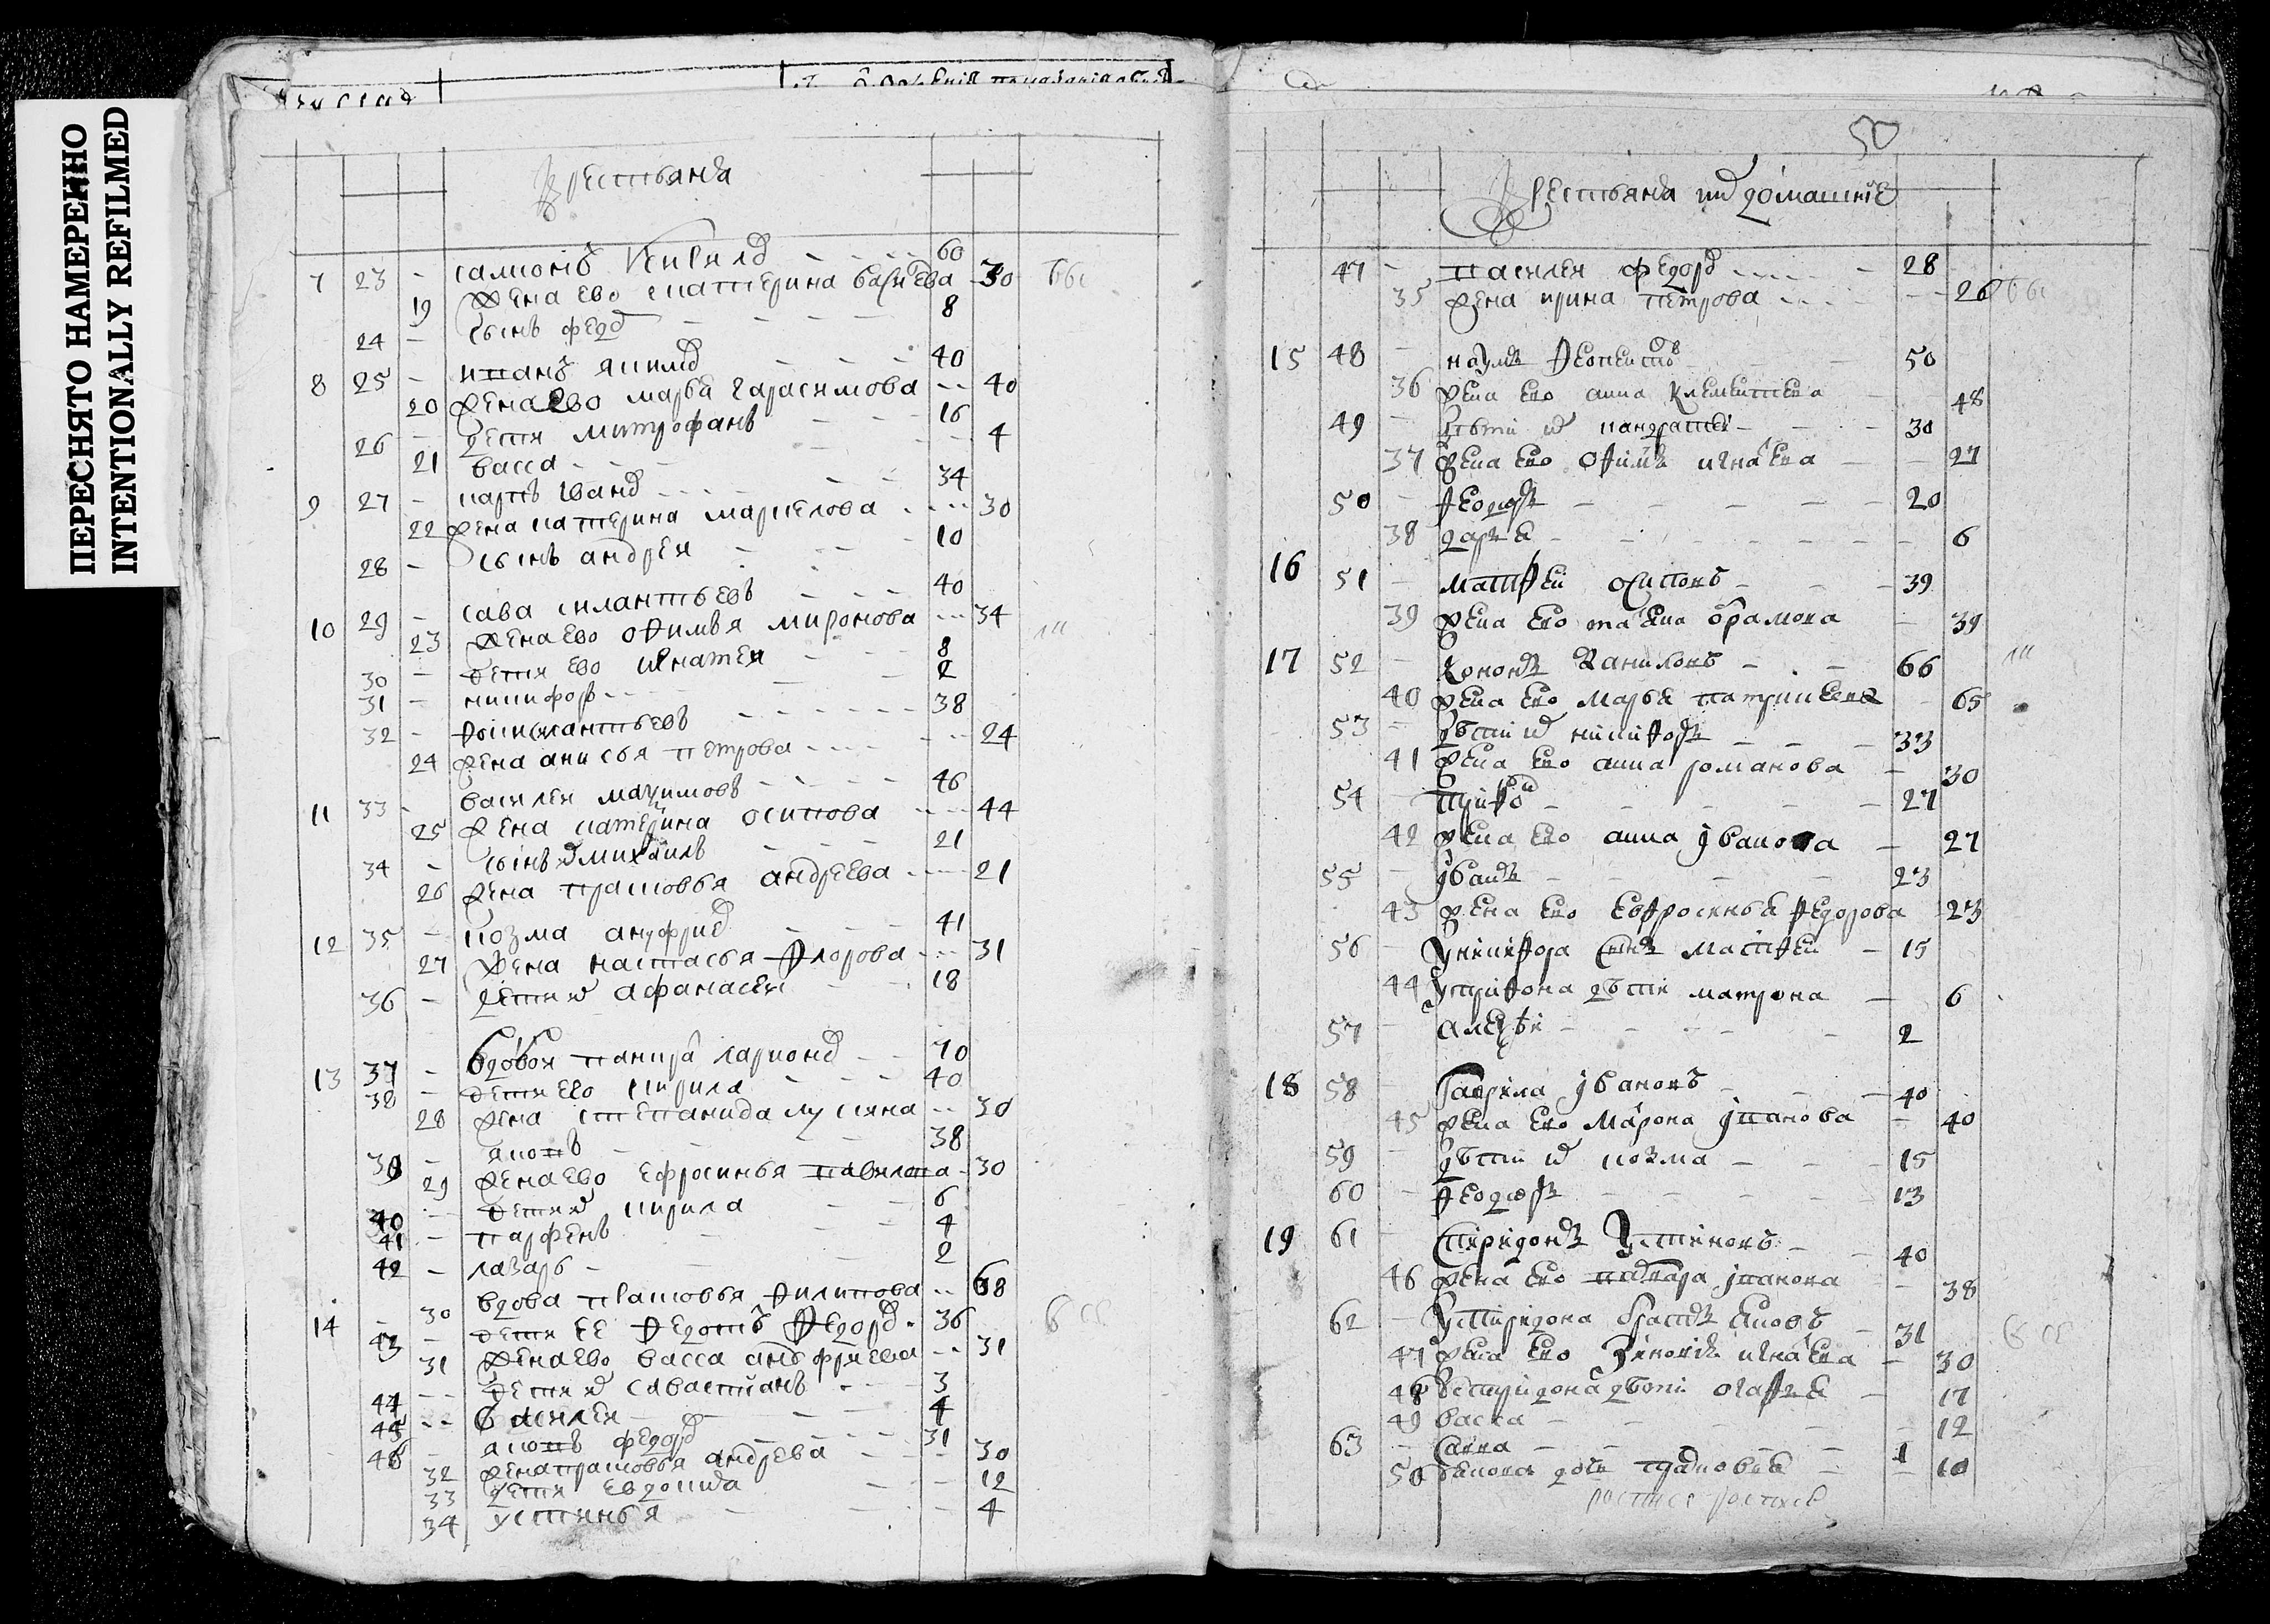 ПЕРЕСНЯТО НАМЕРЕННО
INTENTIONALLY REFILMED
крестьяня
7 23 - самсонъ 60
19 жена ево катерина 30
24 - сынъ федо 8
8 25 - иванъ якимо 40
20 жена ево марья гарасимова 40
26 - дети митрофанъ 16
21 васса 4
9 27 - карпъ иванов 34
22 жена катерина маркелова 30
28 - сынъ андреи 10
10 29 - сава силантьевъ 40
23 жена ево офимья миронова 34
30 - дети ево игнатеи 8
31 - никифор 2
32 - силантьевъ 38
24 жена анисья петрова 24
11 33 - василеи маѯимовъ 46
25 жена катерина осипова 44
34 - сынъ михаилъ 21
26 жена прасковья андреева 21
12 35 - козма ануфрие 41
27 жена настасья флорова 31
36 - дети афанасеи 18
13 37 - вдовои ларионо 70
38 - дети ево кирила 40
28 жена степанида лукияна 30
39 - яковъ 38
29 жена ево ефросинья павлова 30
40 - дети кирила 6
41 - парфенъ 4
42 - лазарь 2
30 вдова прасковья филипова 68
14 43 - дети ее федотъ федоро 36
31 жена ево васса ануфриева 31
44 - дети савастианъ 3
45 - василеи 4
46 - яковъ федоро 31
32 жена прасковья андрева 30
33 дети евдокиа 12
34 устинья 4
50
крестьяня их домашние
47 - василеи федоро 28
35 жена ирина петрова 26
15 48 - наумъ 50
36 жена ево анна клементиева 48
49 - дѣти их панкратеи 30
37 жена ево офимъя игнатева 27
50 - феодоръ 20
38 дарья 6
16 51 - матфеи осиповъ 39
39 жена ево татьяна абрамова 39
17 52 - кононъ даниловъ 66
40 жена ево марья патрикеева 65
53 - дѣти их никифоръ 33
41 жена ево анна романова 30
54 - трифо 27
42 жена ево анна іванова 27
55 - іванъ 23
43 жена ево евфросинья федорова 23
56 - у никифора сынъ матфеи 15
44 у трифона дѣти матрона 6
57 - алеѯѣи 2
18 58 - гаврила івановъ 40
45 жена ево марѳа іванова 40
59 - дѣти их козма 15
60 - феодоръ 13
19 61 - спиридонъ устиновъ 40
46 жена ево варвара іванова 38
62 - у спиридона братъ яковъ 31
47 жена ево зиновія игнатева 30
48 у спиридона дѣти агафья 17
49 васса 12
63 - савва 1
50 якова дочь прасковья 10